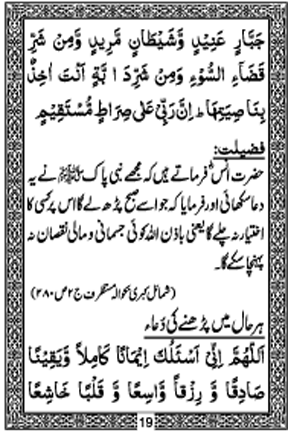 جَبَّارٍ عَنِيْدٍ وَّشَيْطَانٍ مَّرِيْدٍ وَّمِنْ شَرِّ
قَضَاءِ السُّوْءِ وَمِنْ شَرِّ دَابَّةٍ اَنْتَ اٰخِذٌۢ
بِنَاصِيَتِهَا ط اِنَّ رَبِّيْ عَلٰى صِرَاطٍ مُّسْتَقِيْمٍ
فضیلت:
حضرت انسؓ فرماتے ہیں کہ مجھے نبی پاک ﷺ نے یہ
دعا سکھائی اور فرمایا کہ جو اسے صبح پڑھ لے گا اس پر کسی کا
اختیار نہ چلے گا یعنی باذن اللہ کوئی جسمانی و مالی نقصان نہ
پہنچا سکے گا۔
(شمائل کبریٰ بحوالہ مستظرف ج ۲ ص ۲۸۰)
ہر حال میں پڑھنے کی دُعاء
اَللّٰهُمَّ اِنِّيْ اَسْئَلُكَ اِيْمَانًا كَامِلًا وَّيَقِيْنًا
صَادِقًا وَّ رِزْقًا وَّاسِعًا وَّ قَلْبًا خَاشِعًا
19